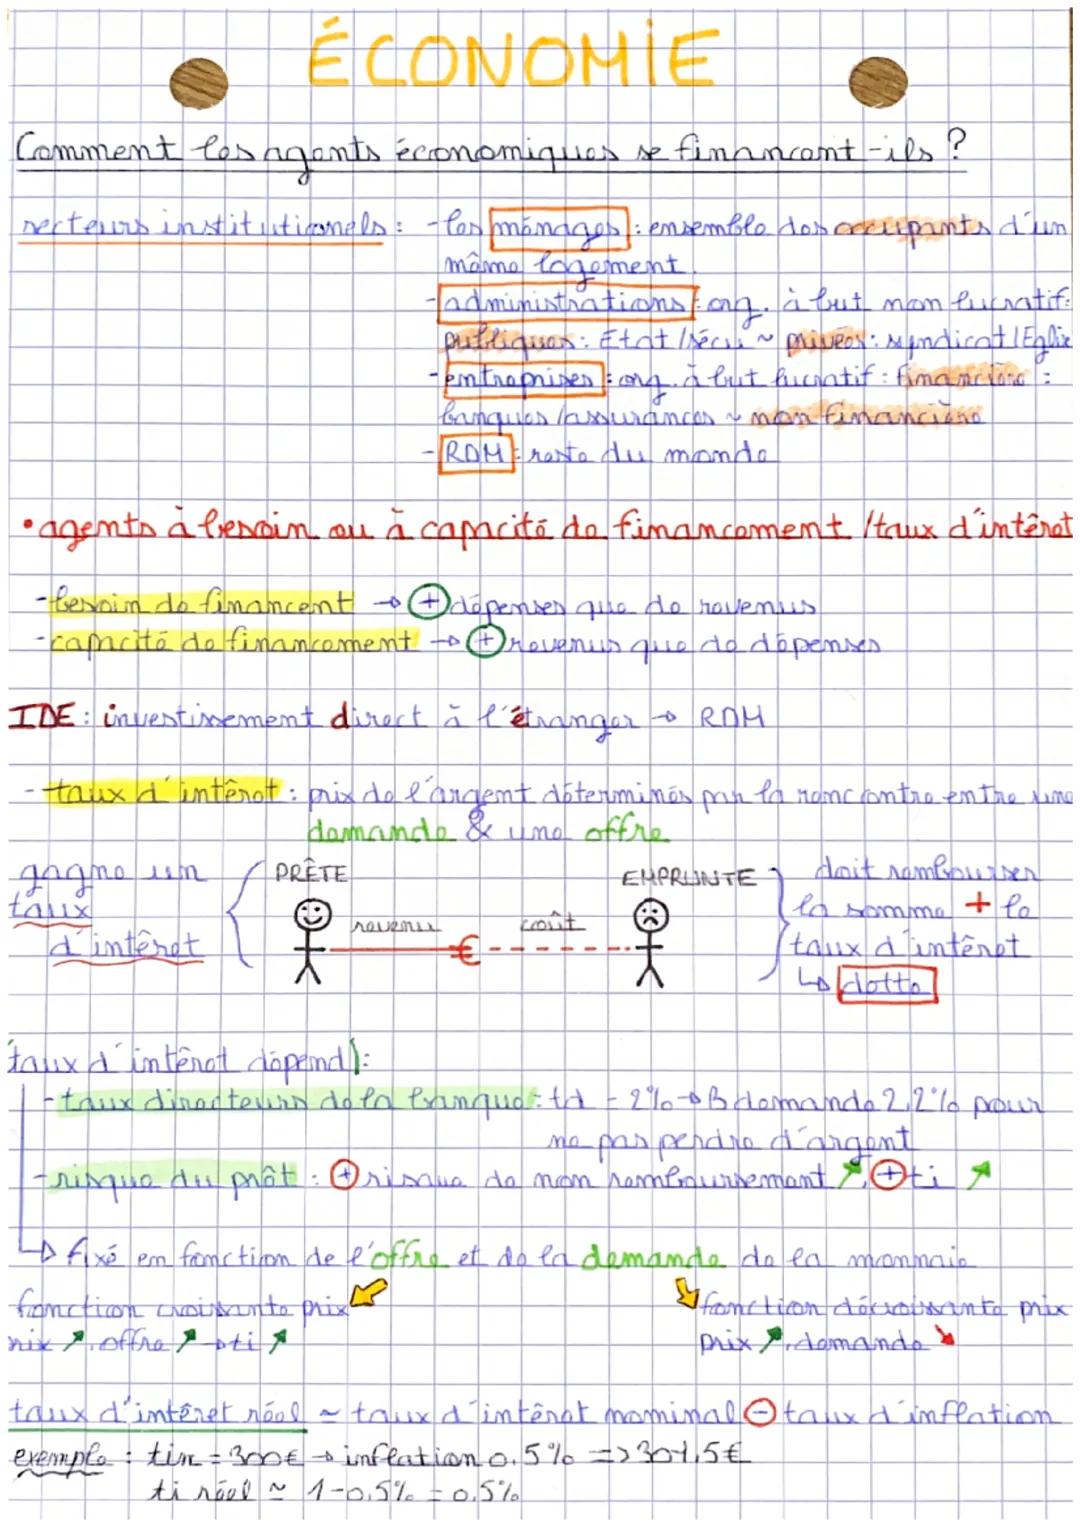 ÉCONOMIE
Comment les agents économiques se financent-ils ?
secteurs institutionnels : - les ménages : ensemble des occupants d'un
même logement.
- administrations : org. à but non lucratif :
publiques : État / sécu ~ privées : syndicat / Église
- entreprises : org. à but lucratif : financière :
banques / assurances ~ non financière
- RDM : reste du monde
• agents à besoin ou à capacité de financement / taux d'intérêt
- besoin de financent → + dépenses que de revenus
- capacité de financement → + revenus que de dépenses
IDE : investissement direct à l'étranger → RDM
- taux d'intérêt : prix de l'argent déterminés par la rencontre entre une
demande & une offre
gagne un taux d'intérêt
PRÊTE
revenu € coût
EMPRUNTE
doit rembourser
la somme + le
taux d'intérêt
↳ dette
taux d'intérêt dépend) :
- taux directeurs de la banque : td = 2% → B demande 2,2% pour
ne pas perdre d'argent
- risque du prêt : + risque de non remboursement ↗, + ti ↗
↳ fixé en fonction de l'offre et de la demande de la monnaie
fonction croissante prix
rix ↗, offre ↗ → ti ↗
fonction décroissante prix
prix ↗, demande ↘
taux d'intérêt réel ~ taux d'intérêt nominal - taux d'inflation
exemple : tin = 300€ → inflation 0,5% => 301,5€
ti réel ~ 1-0,5% = 0,5%